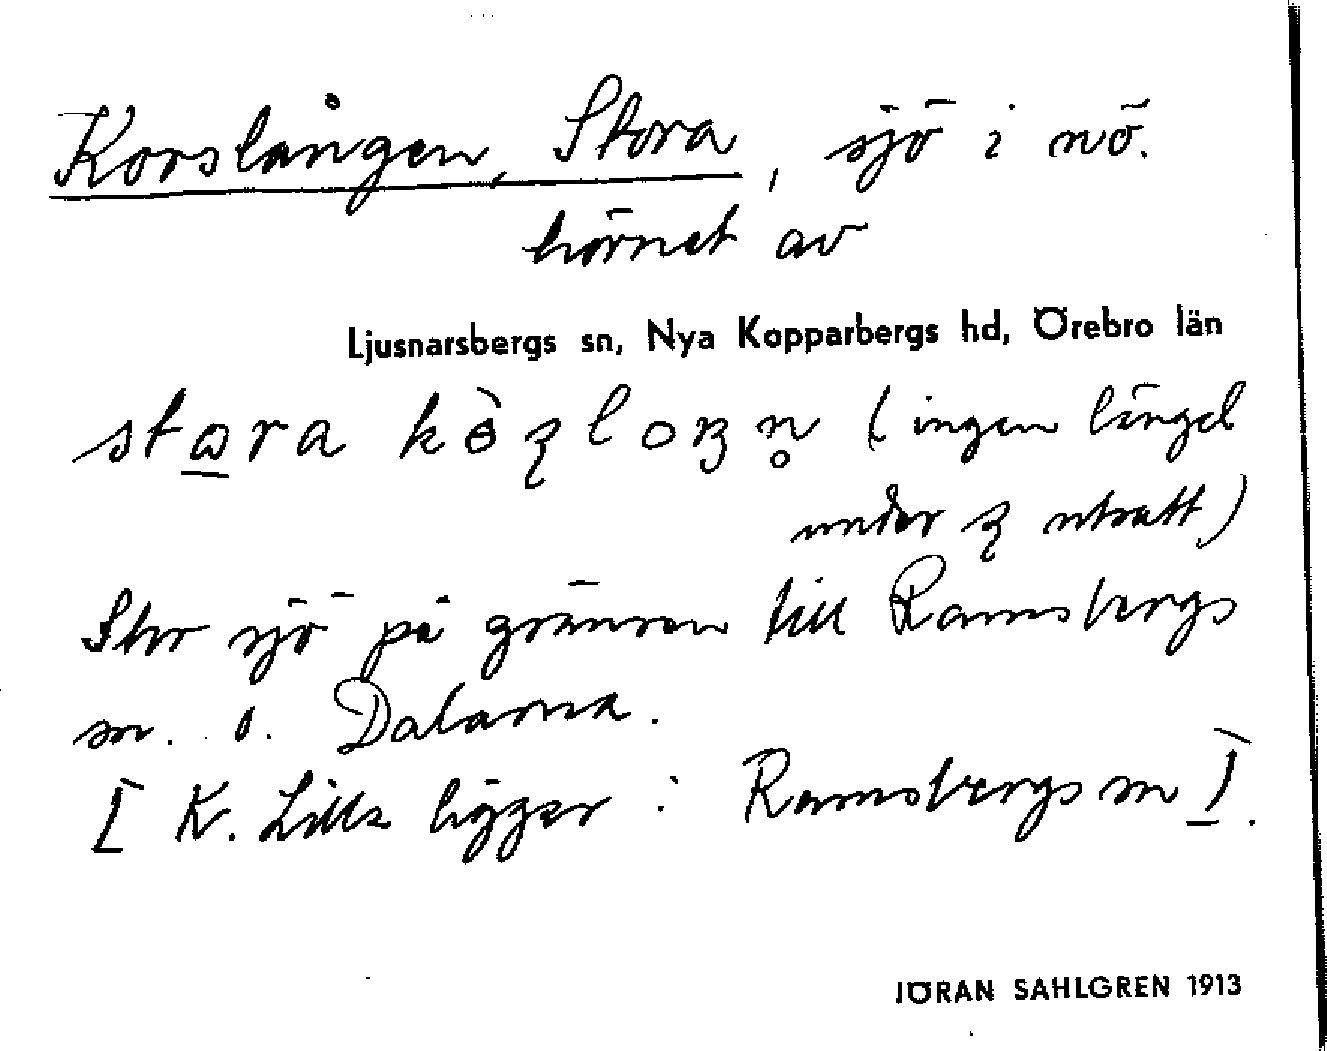 Korslången, Stora, sjö i nö.
hörnet av
Ljusnarsbergs sn, Nya Kopparbergs hd, Örebro län
stora (ingen längd
under utsatt)
Stor sjö på gränsen till Ramsbergs
sn. o. Dalarna.
[K. Lilla ligger i Ramsbergs sn].
JÖRAN SAHLGREN 1913